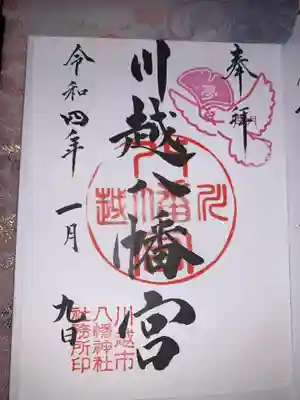 奉拝
川越八幡宮
令和四年
一月
九日
川越市
八幡神社
社務所印